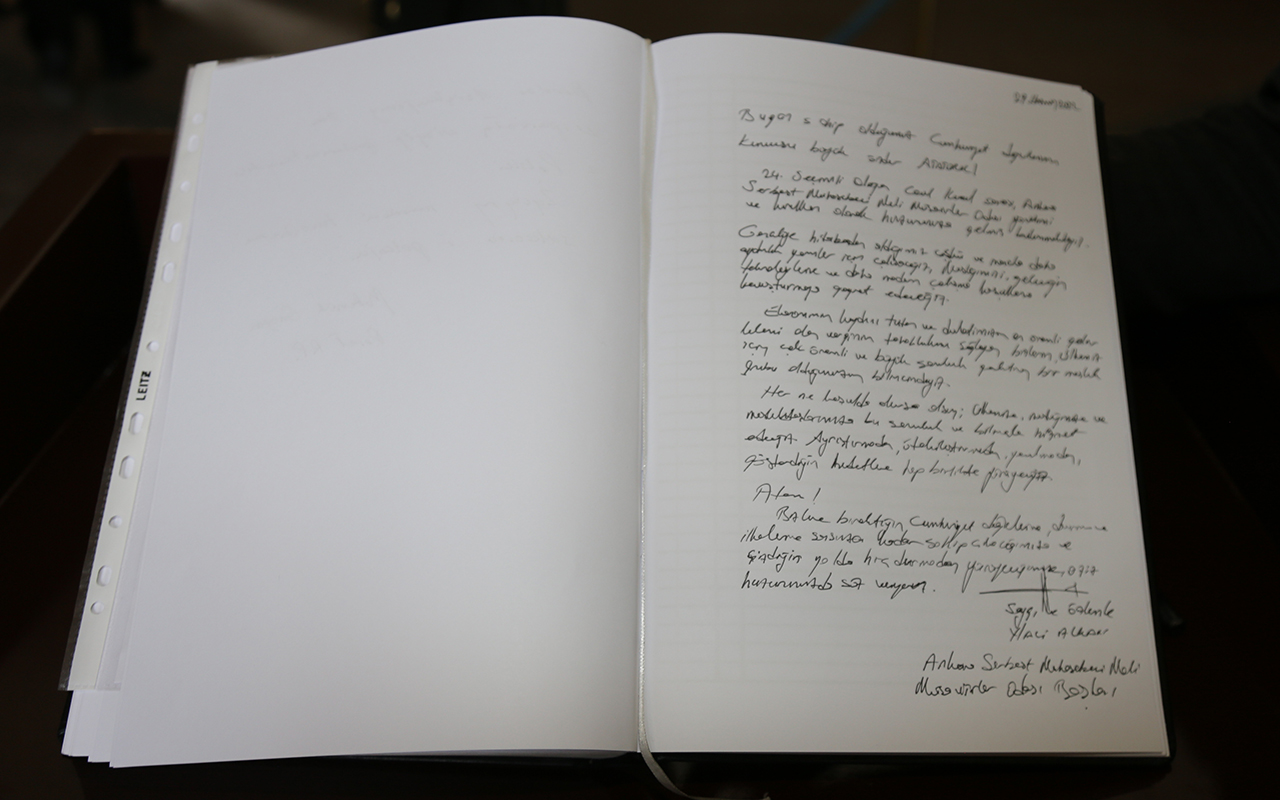 LEITZ
Bugün sahip olduğumuz Cumhuriyet
Kurucusu büyük önder ATATÜRK!
24. Seçimli Olağan Genel Kurul sonrası, Ankara
Serbest Muhasebeci Mali Müşavirler Odası yönetimi
ve kurulları olarak huzurunuza gelmiş bulunmaktayız.
Gençliğe hitabenden aldığımız güçle ve inançla daha
aydınlık yarınlar için çalışacağız, Mesleğimizi, geleceğin
teknolojilerine ve daha modern çalışma koşullarına
kavuşturmaya gayret edeceğiz.
Ekonominin kaydını tutan ve devletimizin en önemli gelir
olan verginin sağlayan bizlerin, ülkemiz
için çok önemli ve büyük bir meslek
grubu olduğumuzun bilincindeyiz.
Her ne koşulda olursa olsun; Ülkemize, mesleğimize ve
meslektaşlarımıza bu sorumluluk ve bilinçle hizmet
edeceğiz. Ayrıştırmadan, ötekileştirmeden, yorulmadan,
gösterdiğin hedeflere hep birlikte yürüyeceğiz.
Atam!
Bizlere bıraktığın Cumhuriyet değerlerine, devrim ve
ilkelerine sonsuza kadar sahip çıkacağımıza ve
çizdiğin yolda hiç durmadan yürüyeceğimize, aziz
huzurunuzda söz veriyorum.
Saygı ve Özlemle
Ankara Serbest Muhasebeci Mali
Müşavirler Odası Başkanı